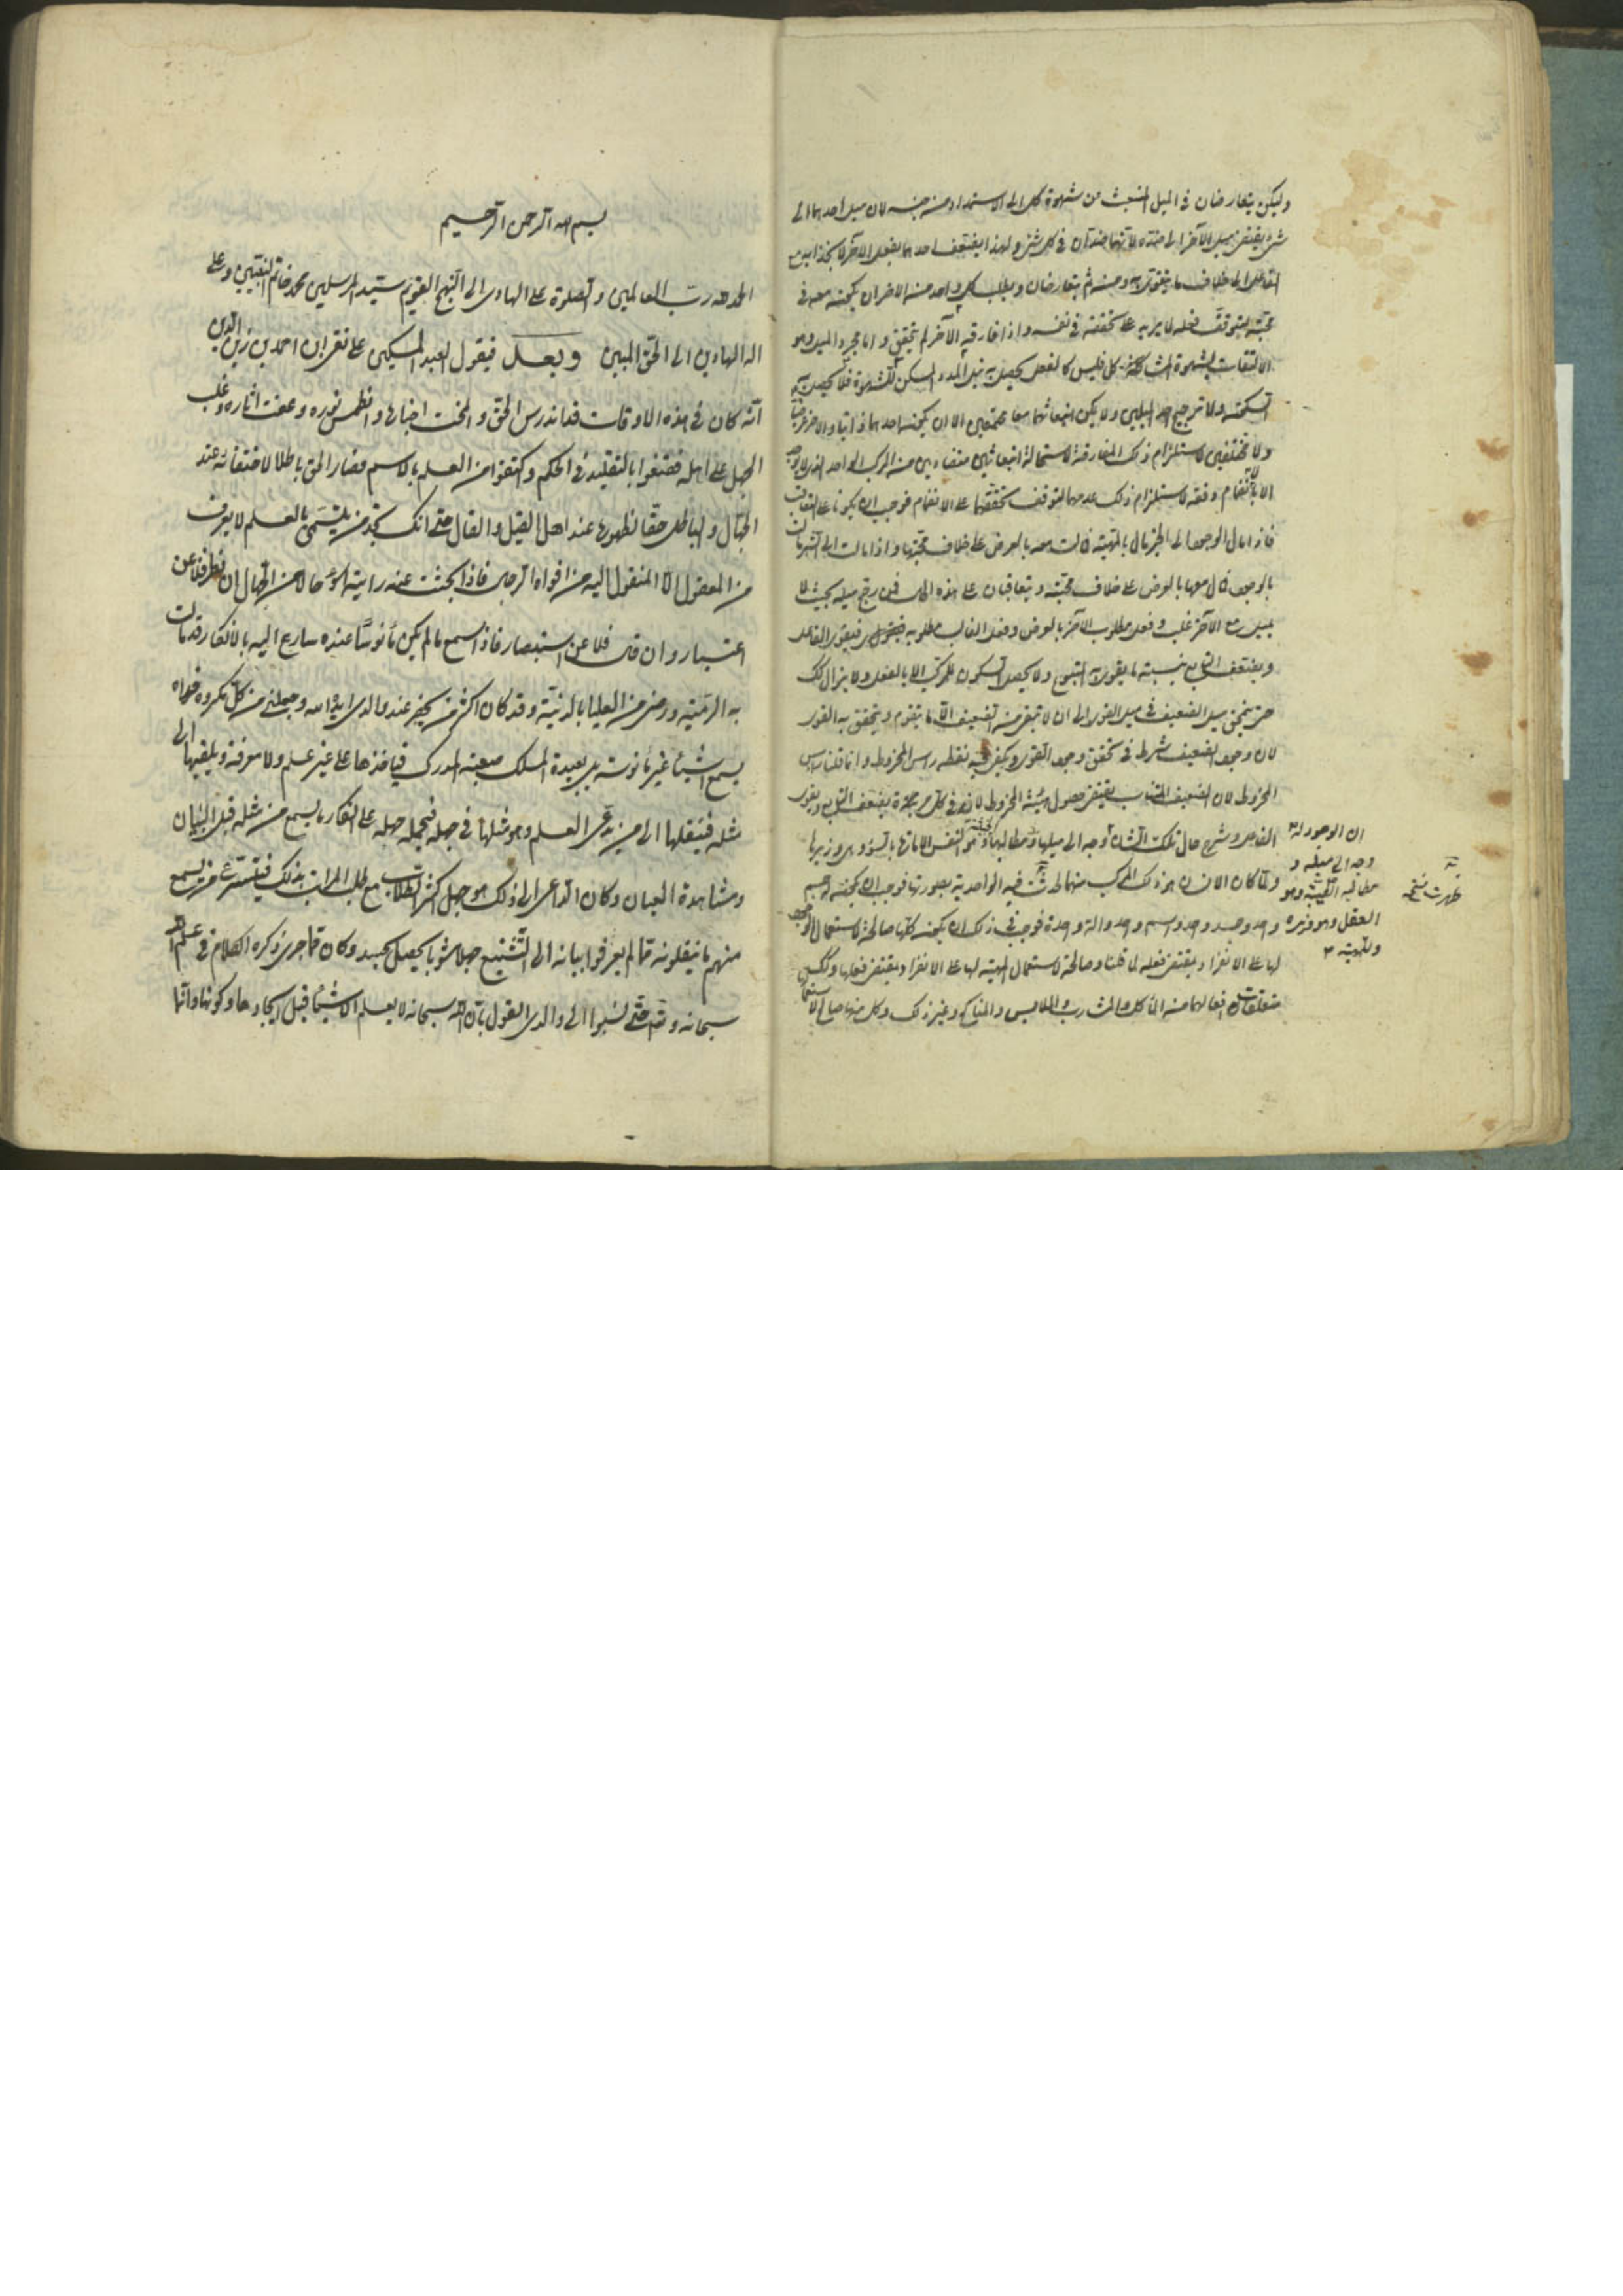 وليكن يتعارضان في الميل المنبعث من شهوة كل الى الاستمداد من جنسه لان ميل احدهما الى
شئ يقتضي ميل الآخر الى ضده لانهما ضدان في كل شئ ولهذا يضعف احدهما بفعل الآخر
القاعل الى خلاف ما يتقوى به ومنه ثم يتعارضان ويطلب كل واحد منه الاخر ان يكون معه في
محبته ليتوقف فعله لما يريد على تحققه في نفسه واذا فارقه الآخر لم يتحقق واما مجرد الميل وهو
الالتفات لشهوة المشاكلة كل فليس كالفعل يحصل به نيل المدد المسكن للشهوة فلا يحصل به
التسكين ولا ترجيح احد الميلين ولا يمكن انبعاثهما معا مجتمعين الا ان يكون احدهما ذاتيا والآخر عرضيا
ولا مختلفين لاستلزام ذلك المفارقة لاستحالة انبعاثين متضادين من المركب الواحد الذي لا يوجد
الا بالانضمام دفعة لاستلزام ذلك عدمهما لتوقف تحققهما على الانضمام فوجب ان يكونا على التعاقب
فاذا مال الوجود الى الخير مال بالمهية فمالت معه بالعرض على خلاف محبتها واذا مالت الى الشر مالت
بالوجود فمال معها بالعرض على خلاف محبته ويتعاقبان على هذه الحال فمن رجح ميله بحيث لا
يميل مع الآخر غلب وفعل مطلوب الآخر بالعرض وفعل الغالب مطلوبه فيقوى الفاعل
ويضعف التابع بنسبة ما يقوى به المتبوع ولا يحصل السكون للمركب الا بالفعل ولا يزال كذلك
حتى يفنى ميل الضعيف في ميل القوي الى ان لا تبقى منه الضعيف الا ما يتقوم ويتحقق به القوي
لان وجود الضعيف شرط في تحقق وجود القوي ويكفي فيه نقطة راس المخروط وانما قلنا راس
المخروط لان الضعيف التناسب يقتضي حصول هيئة المخروط لانه في كل مرة يضعف التابع ويقوى
الفاعل وشرح حال تلك الشدة وجه الى ميلها ومطالبها وهو النفس الامارة بالسوء وهي وزيرها
ولما كان الانسان هو ذلك المركب منهما لحدثت فيه الواحدية بصورتها فوجب ان يكون له جسم
واحد وجسد واحد واسم واحد وآلة واحدة فوجب في ذلك ان يكون كلها صالحة لاستعمال الوجود
لها على الانفراد يقتضي فعله لما قلنا وصالحة لاستعمال المهية لها على الانفراد يقتضي فعلها وتلك
متعلقات افعالهما منه المآكل والمشارب والملابس والمناكح وغير ذلك وكل منها صالح لاستعمال
ان الوجود له
وجه الى ميله و
مطالبه الطيبة وهو
العقل وهو وزيره
وللمهية
ظهرت نسخة
بسم الله الرحمن الرحيم
الحمد لله رب العالمين والصلوة على الهادي الى النهج القويم سيد المرسلين محمد خاتم النبيين وعلى
اله الهادين الى الحق المبين وبعد فيقول العبد المسكين على نقي ابن احمد بن زين الدين
انه كان في هذه الاوقات قد اندرس الحق وامحت اخباره وانطمس نوره وعفت اثاره وغلب
الجهل على اهله فقنعوا بالتقليد في الحكم واكتفوا من العلم بالاسم فصار الحق باطلا لاختفائه عند
الجهال والباطل حقا لظهوره عند اهل القيل والقال حتى انك تجد من يتسمى بالعلم لا يعرف
من المعقول الا المنقول اليه من افواه الرجال فاذا بحثت عنه رايته اسوء حالا من الجهال ان نظر فلا عن
اعتبار وان قال فلا عن استبصار فاذا سمع ما لم يكن مأنوسا عنده سارع اليه بالانكار قد مالت
به الرمية ورضي من العليا بالدنية وقد كان اكثر من يحضر عند والدي ايده الله وجعلني من كل مكروه فداه
يسمع اشياء غير مأنوسة بل بعيدة المسلك صعبة المدرك فياخذها على غير علم ولا معرفة ويلقيها الى
مثله فينقلها الى من يدعي العلم وهو مثلها في جهله فيحمله جهله على انكار ما يسمع من مثله قبل البيان
ومشاهدة العيان وكان الداعي الى ذلك هو جهل اكثر الطلاب مع طلب المراتب بذلك فيتستر عمن يسمع
منهم ما ينقلونه مما لم يعرفوا بيانه الى التشنيع جهلا مشوبا بحصل الحسد وكان مما جرى ذكره الكلام في علم الله
سبحانه وتعالى حتى نسبوا الى والدي القول بان الله سبحانه لا يعلم الاشياء قبل ايجادها وكونها وانما